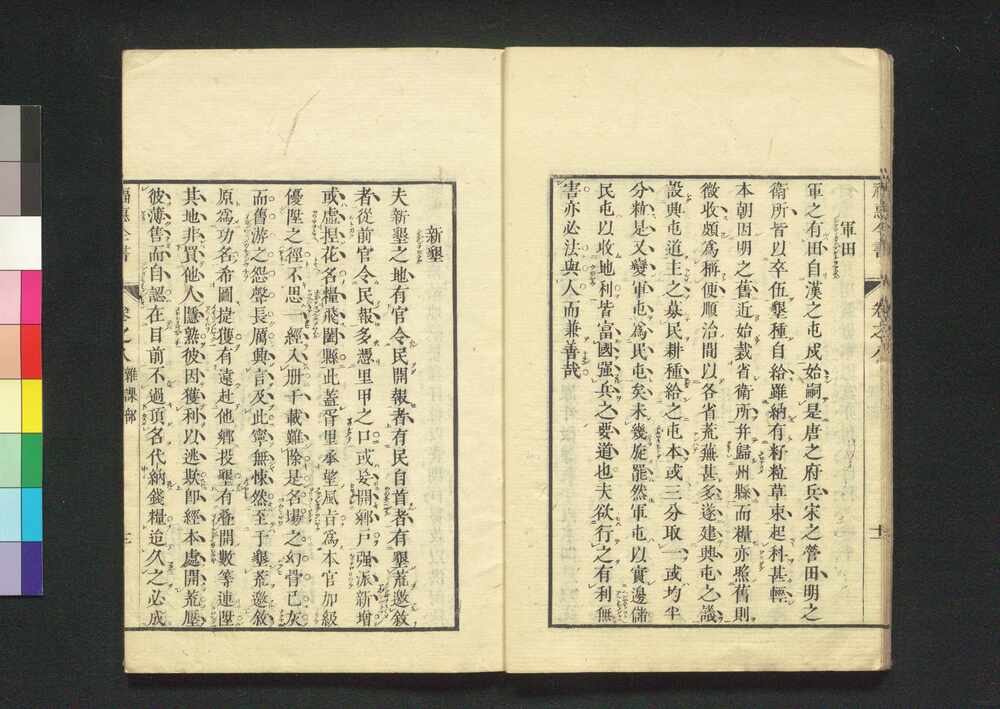 福惠全書 卷之八 十一
軍田
軍之有田自漢之屯戍始嗣是唐之府兵宋之營田明之
衞所皆以卒伍墾種自給雖納有籽粒草束起科甚輕
本朝因明之舊近始裁省衞所并歸州縣而糧亦照舊則
徵收頗爲稱便順治間以各省荒蕪甚多遂建興屯之議
設興屯道主之募民耕種給之屯本或三分取一或均半
分籽是又變軍屯爲民屯矣未幾旋罷然軍屯以實邊儲
民屯以收地利皆富國强兵之要道也夫欲行之有利無
害亦必法與人而兼善哉
新墾
夫新墾之地有官令民開報者有民自首者有墾荒邀敘
者從前官令民報多憑里甲之口或妄開鄉戶强派新增
或虛揑花名糧飛闔縣此蓋胥里承望風旨爲本官加級
優陞之徑不思一經入册千載難除是名場之幻骨已灰
而舊游之怨聲長厲興言及此寧無悚然至于墾荒邀敘
原爲功名希圖捷獲有遠赴他鄉投墾有叠開數等連陞
其地非買他人隱熟彼因獲利以逃欺卽經本處開荒壓
彼薄售而自認在目前不過頂名代納錢糧迨久之必成
福惠全書 卷之八 雜課部 十二